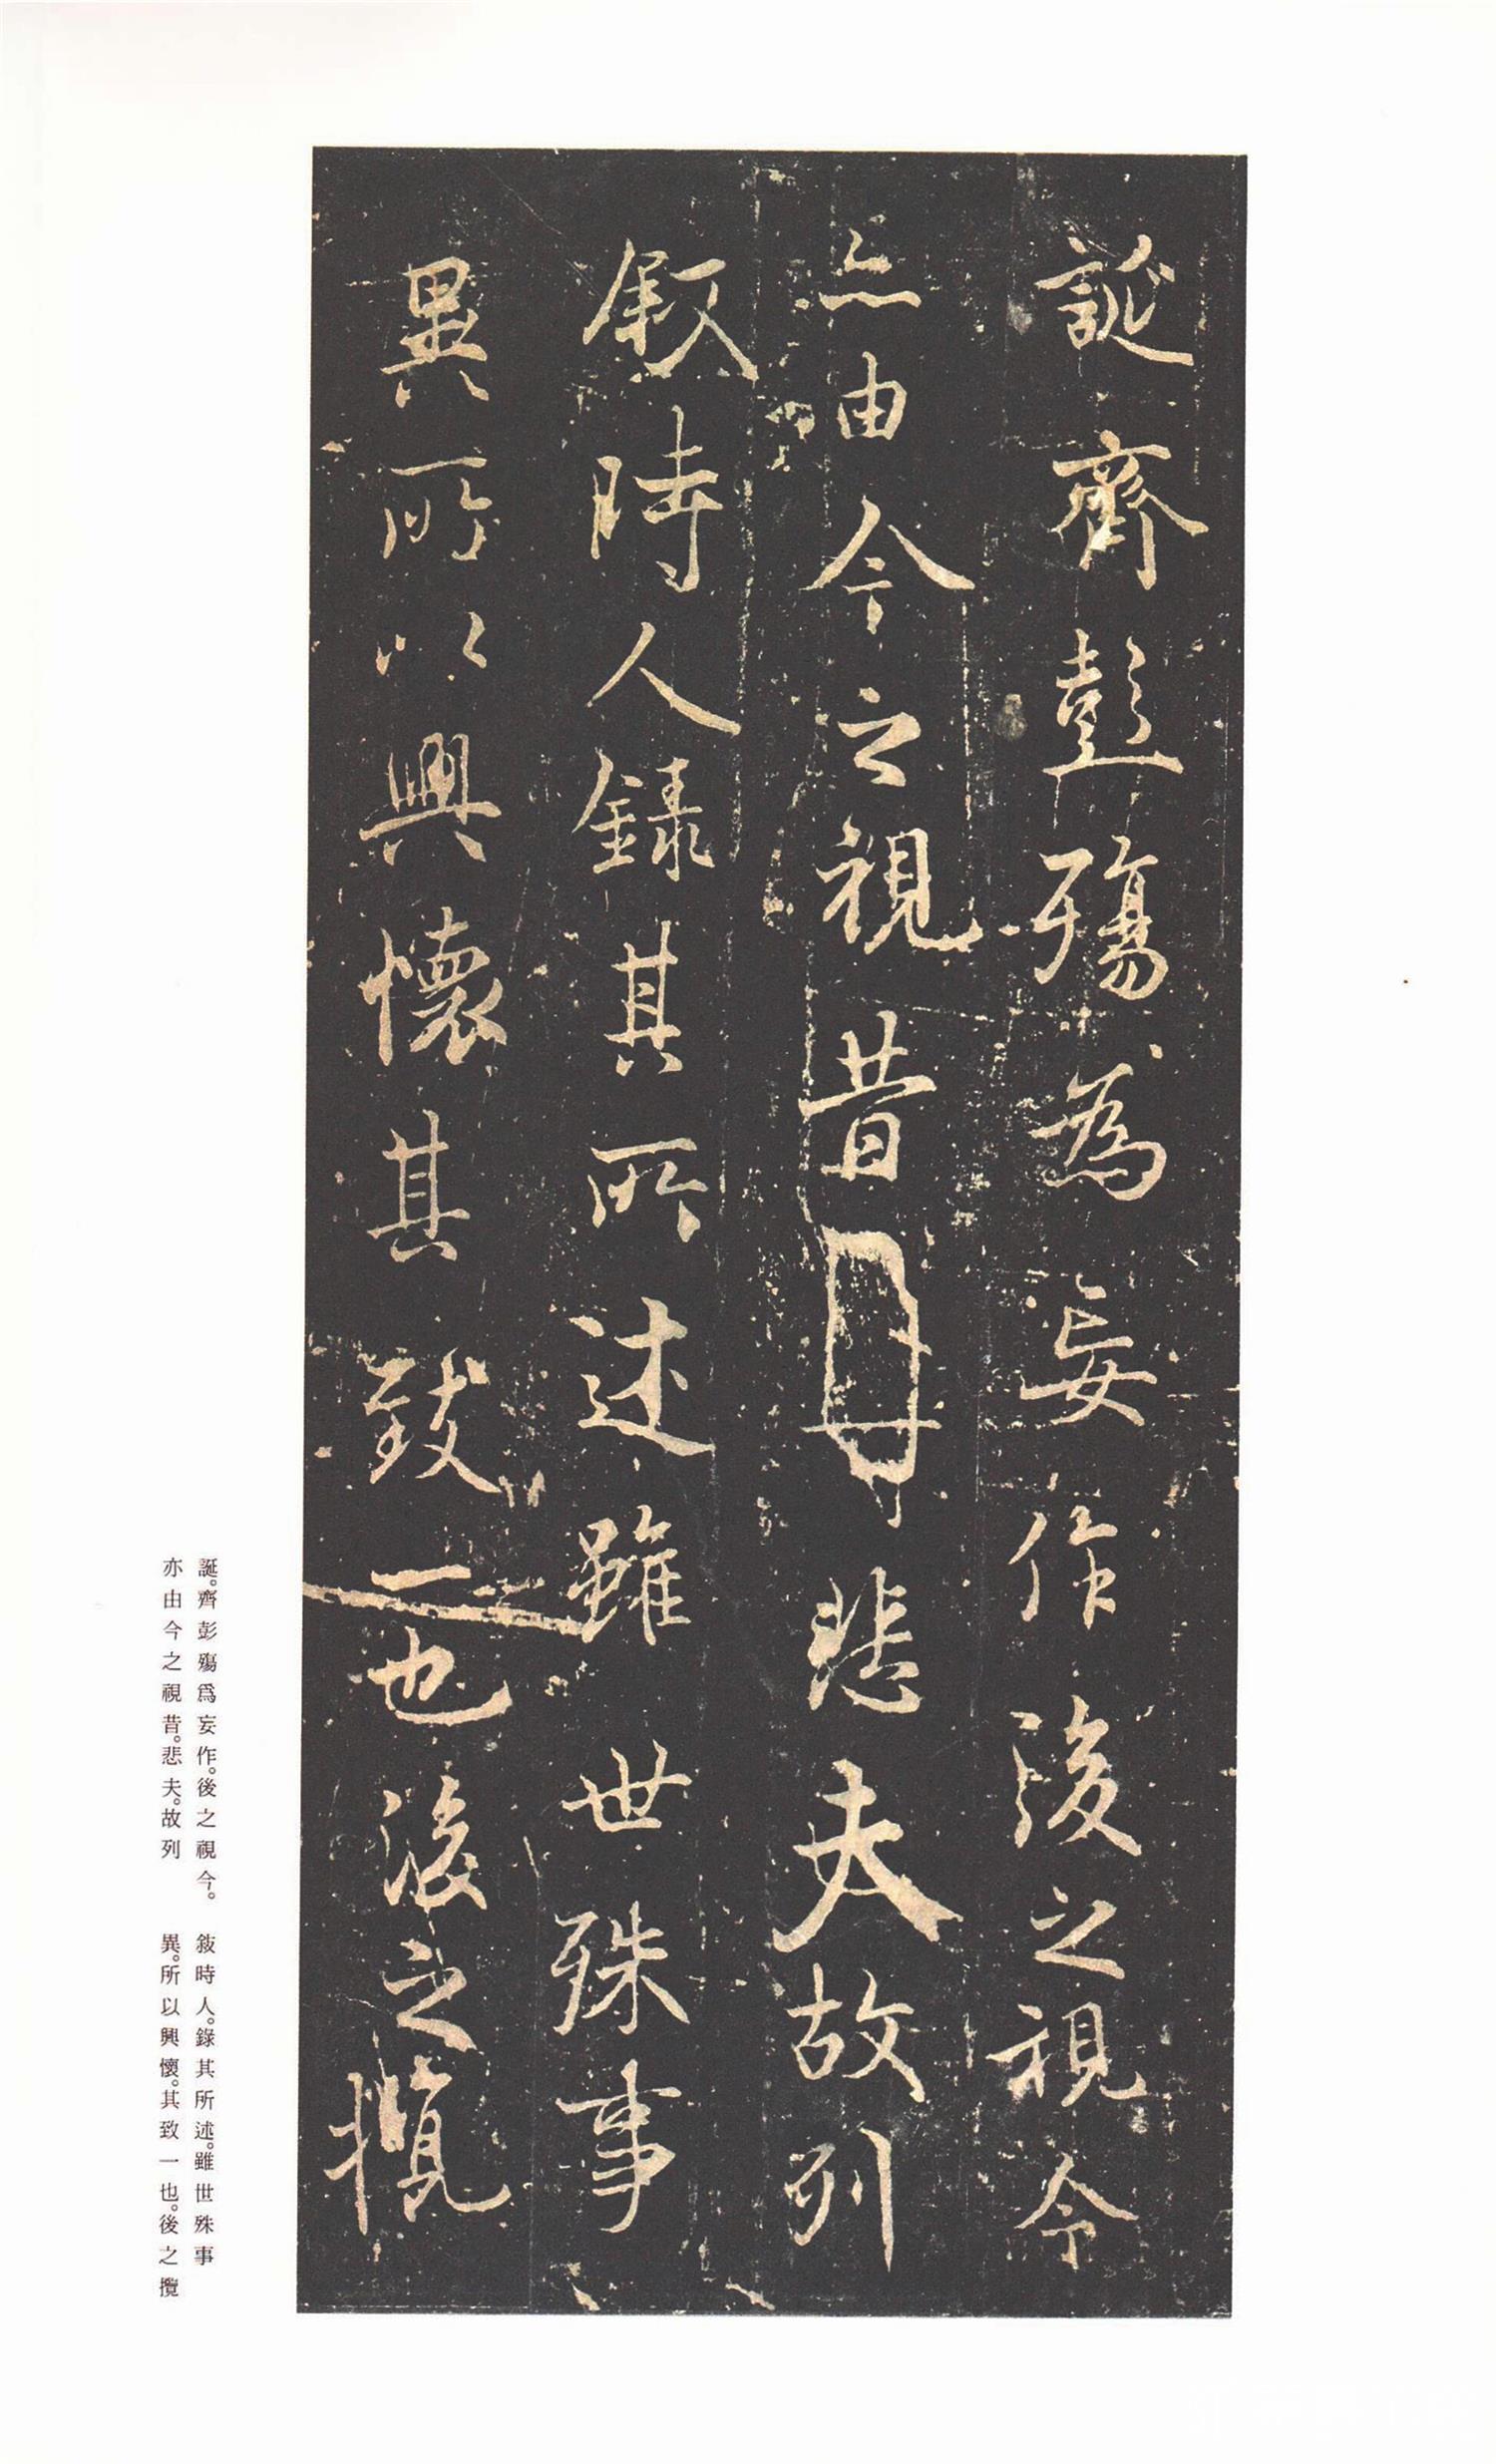 誕齊彭殤為妄作後之視今
亦由今之視昔悲夫故列
叙時人錄其所述雖世殊事
異所以興懷其致一也後之攬
誕。齊彭殤爲妄作。後之視今。
亦由今之視昔。悲夫。故列
敍時人。錄其所述。雖世殊事
異。所以興懷。其致一也。後之攬